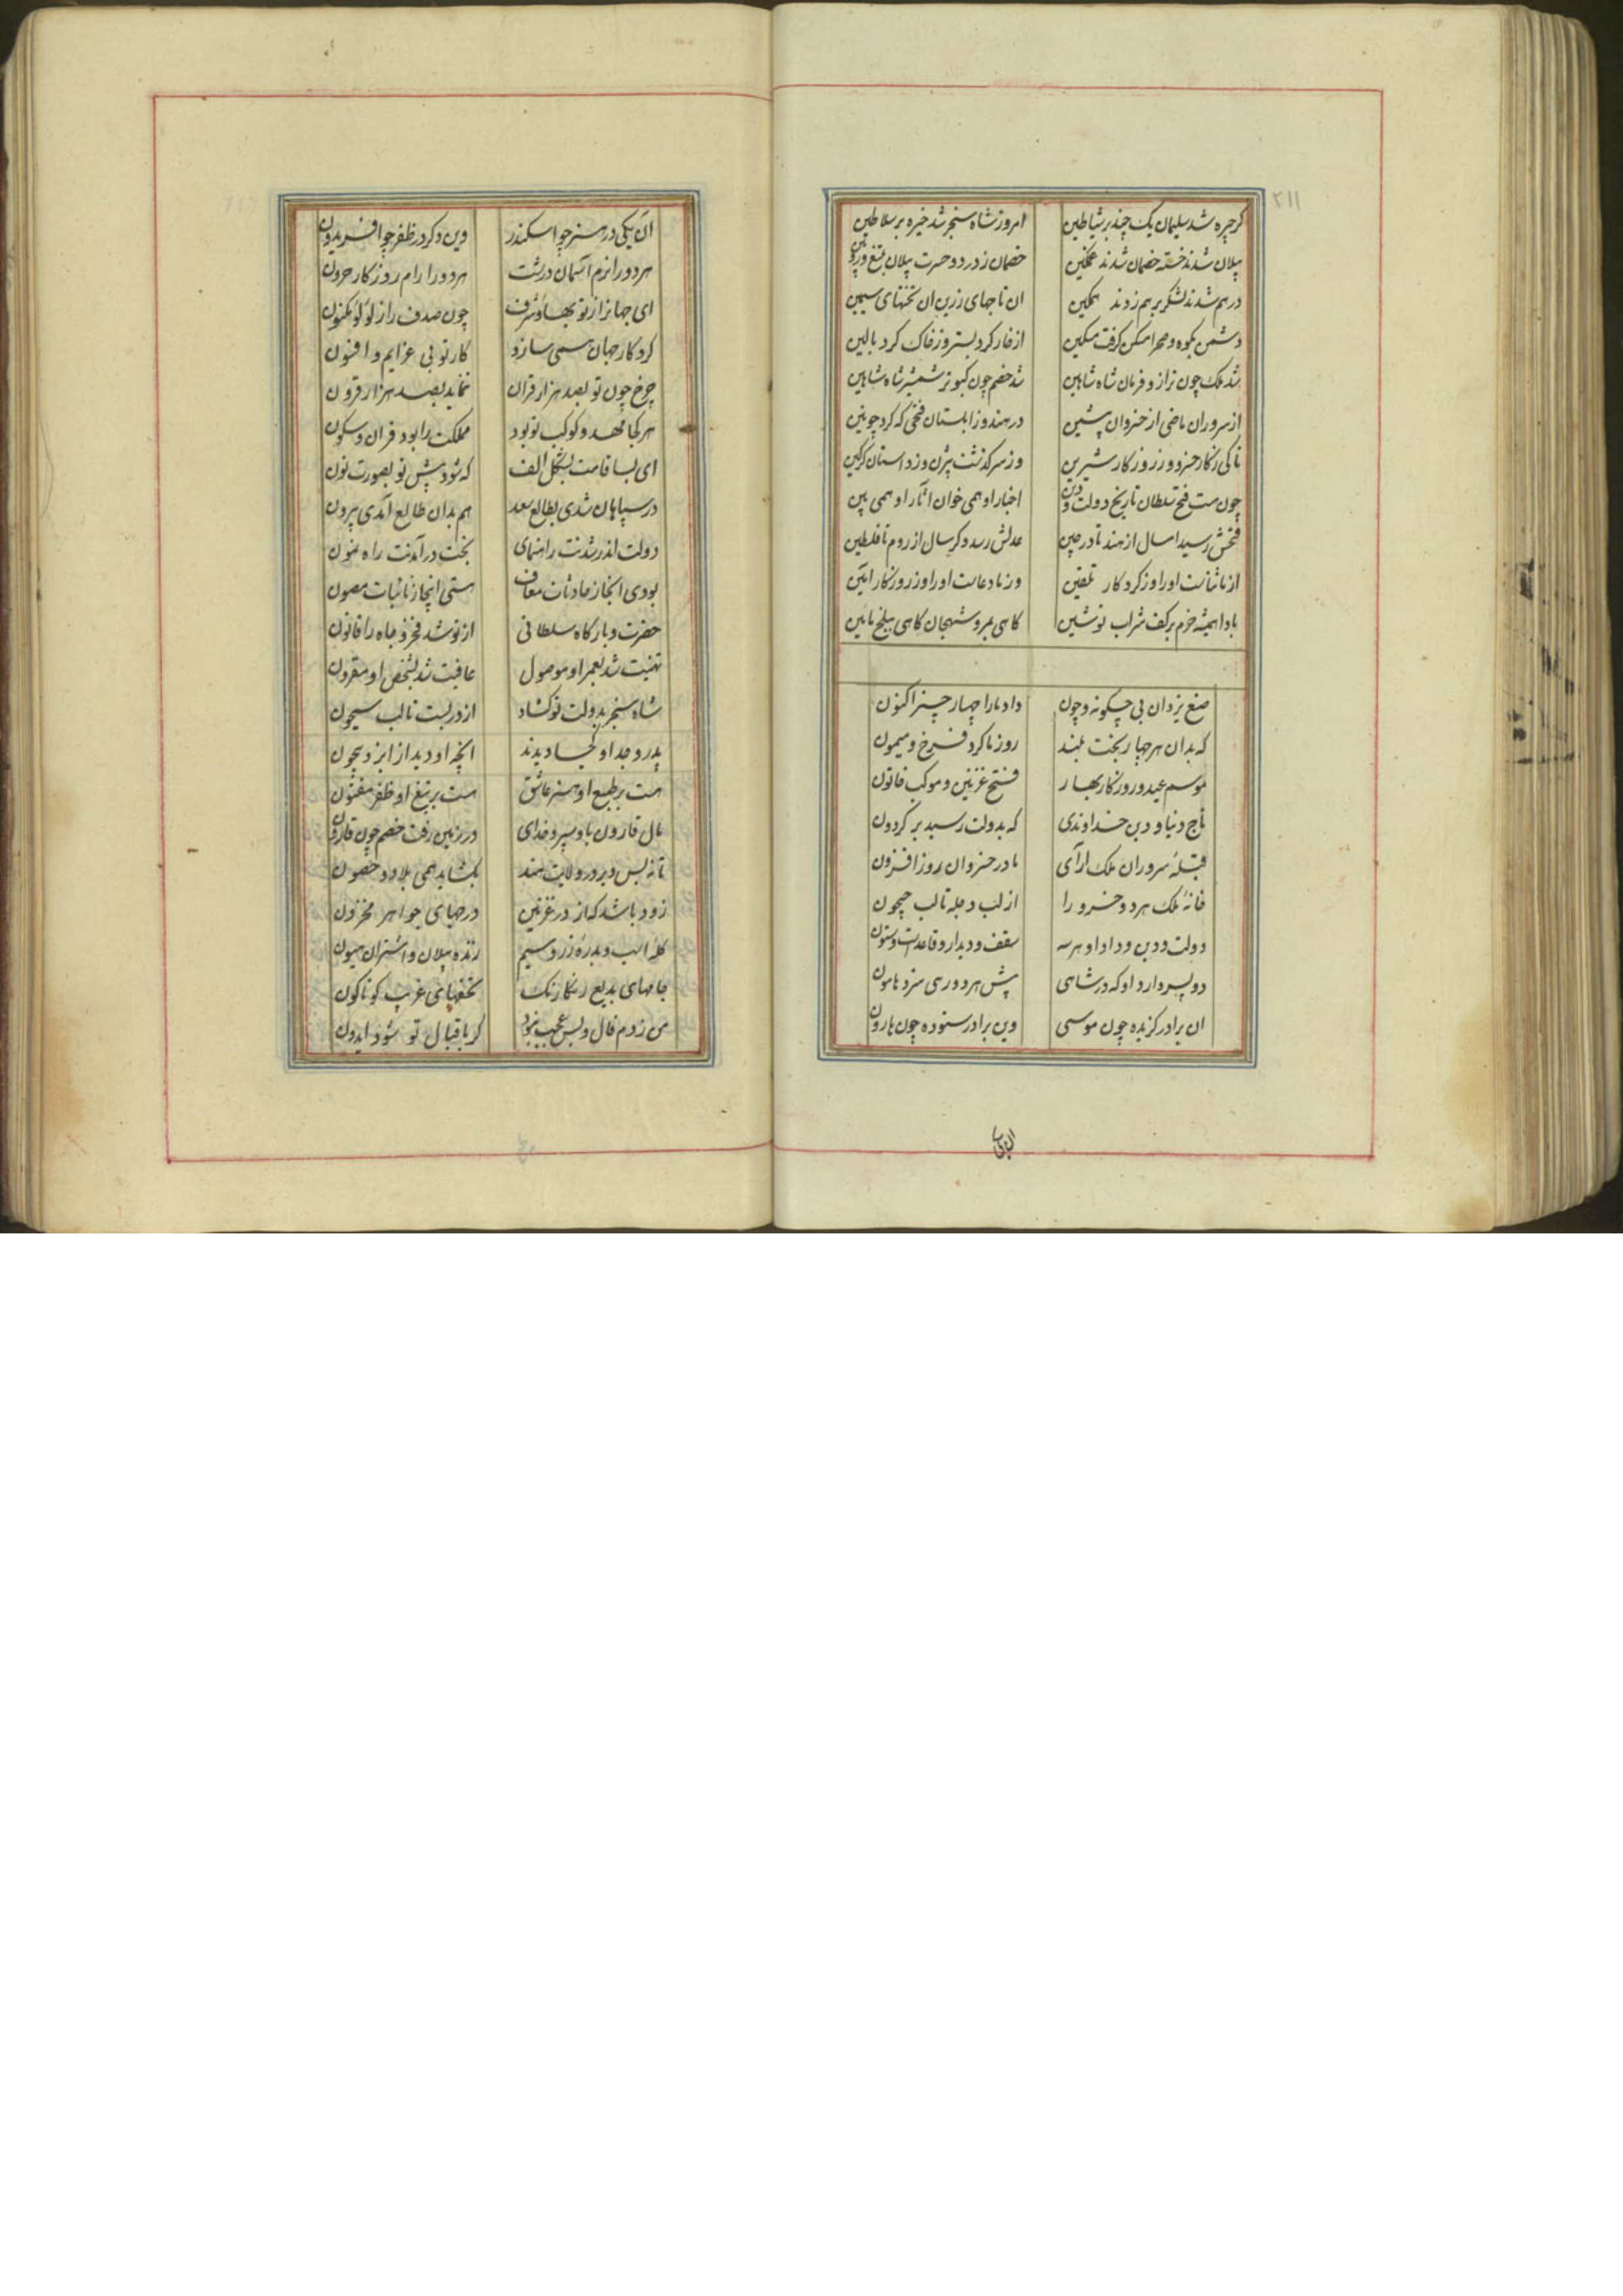 ۲۱۱
کر چیره شد سلیمان یک چند بر شیاطین امروز شاه سنجر شد خیره بر سلاطین
پیلان شدند خسته خصمان شدند غمکین خصمان ز درد و حسرت پیلان بتیغ و زوبین
درهم شدند لشکر برهم زدند همکین ان تاجهای زرین ان تختهای سیمین
دشمن بکوه و صحرا مسکن کرفت مسکین از خار کرد بستر وز خاک کرد بالین
شد ملک چون ترازو فرمان شاه شاهین شد خصم چون کبوتر شمشیر شاه شاهین
از سروران ماضی از خسروان پیشین در هند و زابلستان فتحی که کرد چونین
تا کی ز کار خسرو وز روزکار شیرین وز سرکذشت بیژن وز داستان کرکین
چون هست فتح سلطان تاریخ دولت و دین اخبار او همی خوان اثار او همی بین
فتحش رسید امسال از هند تا در چین عدلش رسد دکر سال از روم تا فلسطین
از ما ثناست او را وز کردکار تلقین وز ما دعاست او را وز روزکار امین
بادا همیشه خرم برکف شراب نوشین کاهی بمرو شهجان کاهی ببلخ بامین
صنع یزدان بی چکونه و چون داد ما را چهار چیز اکنون
که بدان هر چهار بخت بلند روز ما کرد فرخ و میمون
موسم عید و روزکار بهار فتح غزنین و موکب خاتون
تاج دنیا و دین خداوندی که بدولت رسید بر کردون
قبلهٔ سروران ملک آرای مادر خسروان روز افزون
خانهٔ ملک هر دو خسرو را از لب دجله تا لب جیحون
دولت و دین و داد او هر سه سقف و دیدار و قاعدست و ستون
دو پسر دارد او که در شاهی پیش هر دو رهی سزد مامون
ان برادر کزیده چون موسی وین برادر ستوده چون هارون
ان یکی
آن یکی در هنر چو اسکندر وین دکر در ظفر چو افریدون
هر دو را نرم آسمان درشت هر دو را رام روزکار حرون
ای جهانرا ز تو بها و شرف چون صدف را ز لولو مکنون
کردکار جهان همی سازد کار تو بی عزایم و افسون
چرخ چون تو بصد هزار قران ننماید بصد هزار قرون
هر کجا مهد و کوکب تو بود مملکت را بود قران و سکون
ای بسا قامت بشکل الف که شود پیش تو بصورت نون
در سپاهان شدی بطالع سعد هم بدان طالع آمدی بیرون
دولت اندر شدنت راهنمای بخت در آمدنت راه نمون
بودی انجا ز حادثات معاف هستی اینجا ز نائبات مصون
حضرت و بارکاه سلطانی از تو شد فخر و جاه را قانون
تهنیت شد بعمر او موصول عافیت شد بشخص او مقرون
شاه سنجر بدولت تو کشاد از در بست تا لب سیحون
پدر و جد او کجا دیدند انچه او دید از ایزد بیچون
هست بر طبع او هنر عاشق هست بر تیغ او ظفر مفتون
مال قارون باو سپرد خدای در زمین رفت خصم چون قارون
تا نه بس دیر در ولایت هند بکشاید همی بلاد و حصون
زود باشد که از در غزنین درجهای جواهر مخزون
کلهٔ اسب و بدرهٔ زر و سیم زنده پیلان و اشتران هیون
جامهای بدیع رنکارنک تحفهای غریب کوناکون
من زدم فال و بس عجب نبود کر باقبال تو شود ایدون